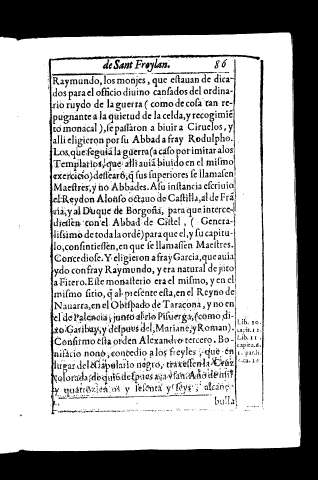 de Sant Froylan. 86
Raymundo, los monjes, que estauan de dica-
dos para el officio diuino cansados del ordina-
rio ruydo de la guerra (como de cosa tan re-
pugnante a la quietud de la celda, y recogimiē
to monacal), se passaron a biuir a Ciruelos, y
alli eligieron por su Abbad a fray Rodulpho.
Los que seguiā la guerra (a caso por imitar a los
Templarios, que alli auiā biuido en el mismo
exercicio) dessearō, q̃ sus superiores se llamassen
Maestres, y no Abbades. A su instancia escriuio
el Rey don Alonso octauo de Castilla, al de Frā
cia, y al Duque de Borgoña, para que interce-
diessen con el Abbad de Cistel, (Genera-
lissimo de toda la ordē) para que el, y su capitu-
lo, consintiessen, en que se llamassen Maestres.
Concediose. Y eligieron a fray Garcia, que auia
ydo con fray Raymundo, y era natural de juto
a Fitero. Este monasterio era el mismo, y en el
mismo sitio, q̃ al presente esta, en el Reyno de
Nauarra, en el Obispado de Taraçona, y no en
el de Palencia, junto al rio Pisuerga, (como di-
xo Garibay, y despues del, Mariane, y Roman).
Confirmo esta orden Alexandro tercero. Bo-
nifacio nono, concedio a los freyles, que en
lugar del escapolario negro, traxessen la Cruz
colorada, de que despues aca vsan. Año de mil
y quatrozientos y sesenta y seys, alcanço
bulla
Lib. 10.
capit. 12.
Lib. 11.